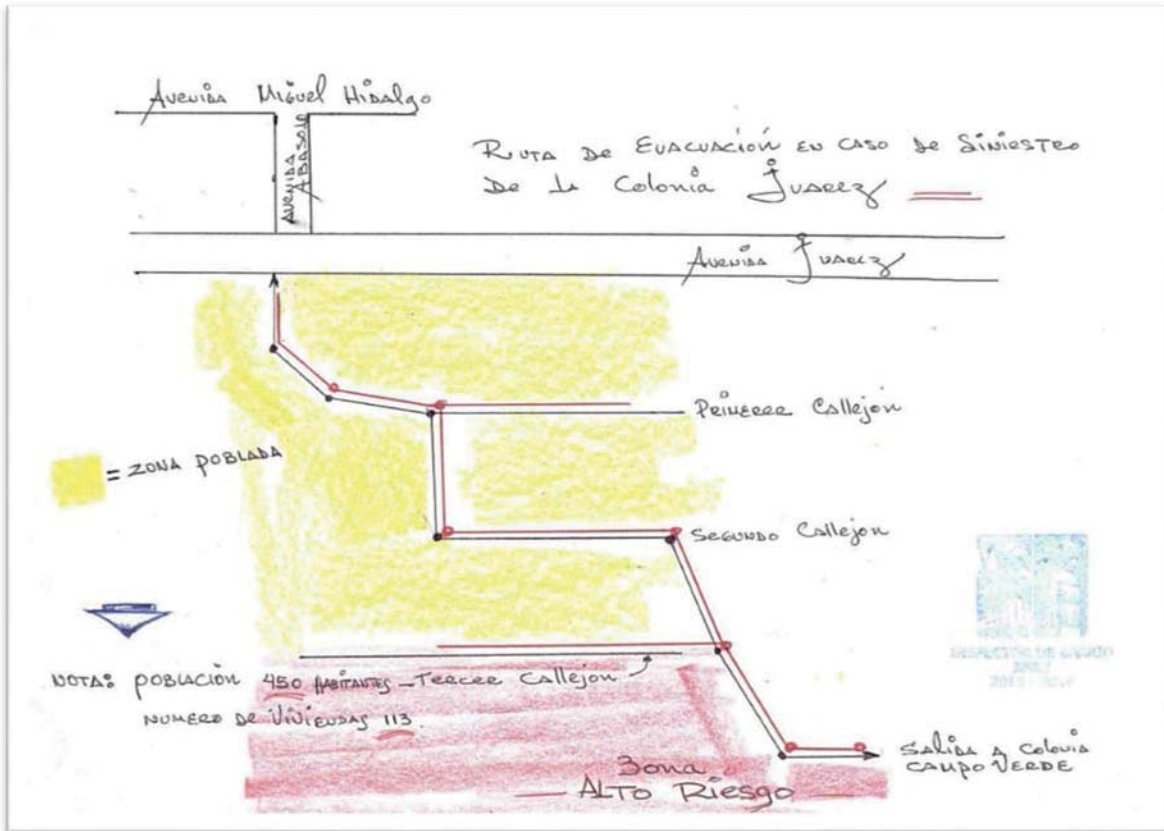 Avenida Miguel Hidalgo
AVENIDA
ABASOLO
RUTA DE EVACUACIÓN EN CASO DE SINIESTRO
DE LA COLONIA JUAREZ
AVENIDA JUAREZ
PRIMERR CALLEJON
= ZONA POBLADA
SEGUNDO CALLEJON
NOTA: POBLACIÓN 450 HABITANTES - TERCER CALLEJON
NUMERO DE VIVIENDAS 113.
SALIDA A COLONIA
CAMPO VERDE
Zona
ALTO RIESGO